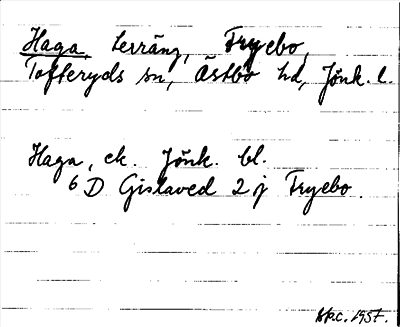 Haga, terräng, Fryebo,
Tofteryds sn, Östbo hd, Jönk. l.
Haga, ek. Jönk. bl.
6 D Gislaved 2 j Fryebo.
1957.